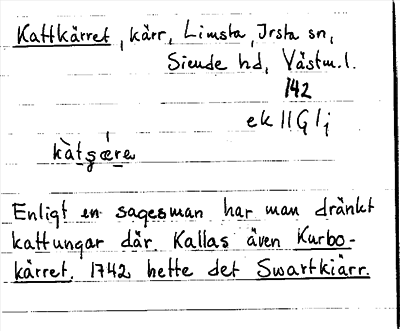 Kattkärret, kärr, Limsta, Irsta sn,
Siende hd, Västm. l.
142
ek 11 G 1 j
kàtsæ̀rə
Enligt en sagesman har man dränkt
kattungar där. Kallas även Kurbo-
kärret. 1742 hette det Swartkiärr.